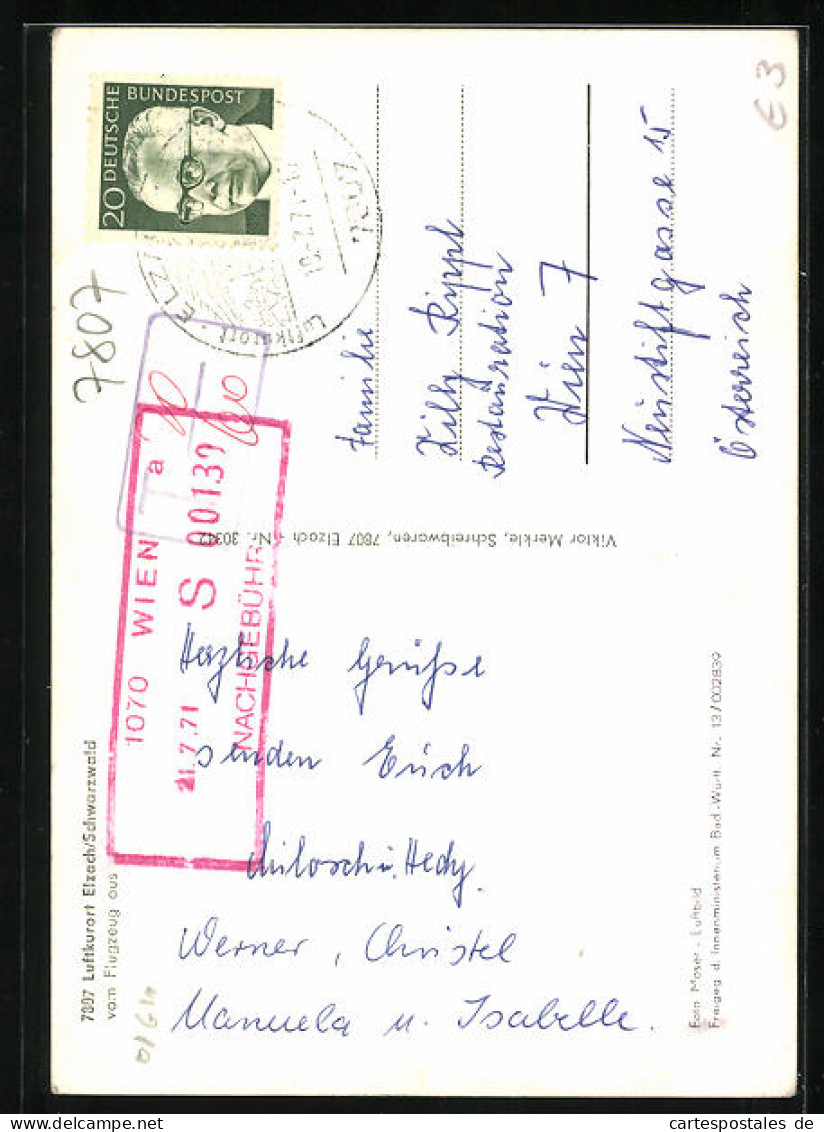 7807 Luftkurort Elzach/Schwarzwald
vom Flugzeug aus
Herzliche Grüße
senden Euch
Milosch u. Hedy,
Werner, Christel
Manuela u. Isabelle.
Foto Moser - Luftbild
Freigeg. d. Innenministerium Bad.-Württ. Nr. 13/002839
Viktor Merkle, Schreibwaren, 7807 Elzach - Nr. 30342
1070 WIEN a
21.7.71 S 00139
NACHGEBÜHR
T
7807
20 DEUTSCHE
BUNDESPOST
7807
Luftkurort
Familie
Restauration
Wien 7
Neustiftgasse 15
Österreich
€3
cartespostales de
https://www.delcampe.net